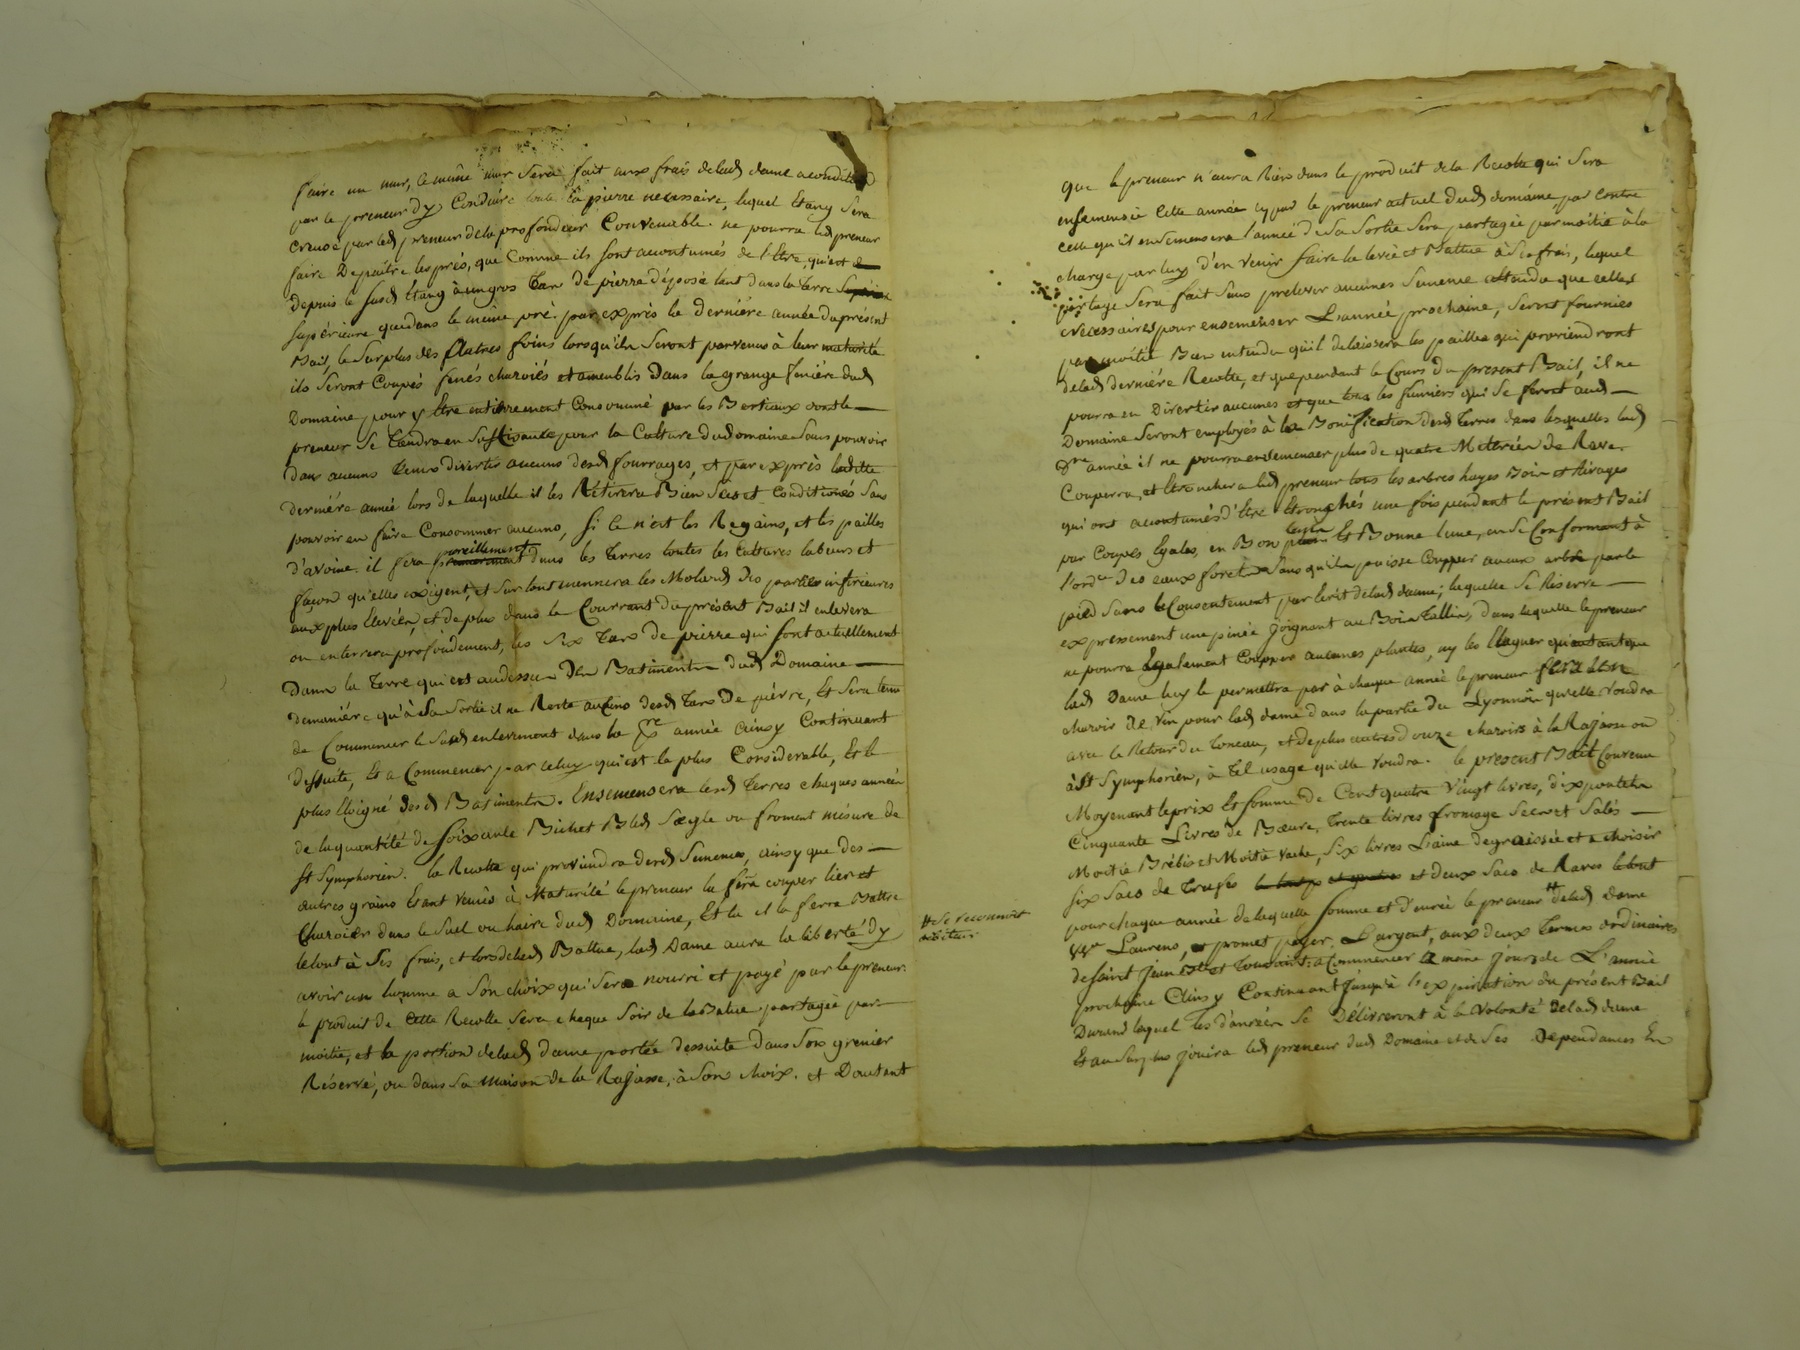 faire un mur, le même mur Sera fait aux frais de lad dame a condition
par le preneur d'y Conduire toute la pierre necessaire, lequel Etang Sera
Creusé par led preneur de la profondeur Convenable. ne pourra led preneur
faire Depaître les prés, que Comme ils sont acoutumés de l'Etre, qu'est de
depuis le susd Etang à un gros Tas de pierre déposé tant dans la terre
Supérieure que dans le même pré. par exprés la derniére année du présent
Bail, le Surplus des foins lorsqu'ils Seront parvenus à leur maturité
ils Seront Coupés fenés charoiés et ameublis dans la grange feniére dud
Domaine pour y Etre entiérement Consommé par les Bestiaux dont le
preneur Se tiendra en Suffisance pour la Culture du domaine Sans pouvoir
dans aucuns tems divertir aucuns desd fourrages, et par exprés laditte
derniére année lors de laquelle il les Retirera Bien Secs et Conditionés Sans
pouvoir en faire Consommer aucuns, Si ce n'est les Regains, et les pailles
d'avoine. il fera pareillement dans les Terres toutes les Cultures labours et
façon qu'elles exigent, et sur tout mennera les Molards des parties inferieures
aux plus Elevées, et de plus dans le Courrant du présent Bail il enlevera
ou enterrera profondement, les Six Tas de pierre qui sont actuellement
Dans la Terre qui est audessus des Batiments dud Domaine
demaniére qu'à Sa Sortie il ne Reste aucuns desd Tas de piérre, Et Sera tenu
de Commencer le Susd enlevement dans la 1re année ainsy Continuant
dessuite, Et a Commencer par celuy qui est le plus Considerable, Et le
plus Eloigné desd Batiments. Ensemensera lesd Terres chaques année
de la quantité de Soixante Bichet Bled Seigle ou froment mésure de
St Symphorien. la Recolte qui proviendra desd Semences, ainsy que des
autres grains Etant venûs à Maturité le preneur la fera couper lier et
Charoier dans le Suel ou haire dud Domaine, Et la il la ferra Battre
le tout à Ses frais, et lors de lad Battue, lad Dame aura la liberté d'y
avoir un homme a Son choix qui Sera nourri et payé par le preneur.
le produit de Cette Recolte Sera chaque Soir de la Batue partagée par
moitié, et la portion de lad dame portée dessuite dans Son grenier
Réservé, ou dans Sa maison de la Rajasse, à Son choix. et D'autant
que le preneur n'aura Rien dans le produit de la Recolte qui Sera
ensemensée Cette année cy par le preneur actuel dud domaine par contre
celle qu'il ensemensera l'année de Sa Sortie Sera partagée par moitié à la
charge par luy d'en venir faire la levée et Battue à Ses frais, lequel
partage Sera fait Sans prelever aucunes Semence attendu que celles
necessaires pour ensemenser L'année prochaine, Seront fournies
par moitié Bien entendu qu'il delaissera les pailles qui proviendront
de lad derniére Recolte, et que pendant le Cours du present Bail, il ne
pourra en Divertir aucunes et que tous les fumiers qui Se feront aud
Domaine Seront employés à la Bonification desd Terres dans lesquelles lad
année il ne pourra ensemenser plus de quatre Metterées de Rave.
Couperra, et Etronchera led preneur tous les arbres hayes Bois et Rivages
qui ont acoutumés d'Etre Etronchés une fois pendant le présent Bail
par Coupes Egales, en Bon tems Et Bonne lune, en Se Conformant à
l'ordce des eaux forets Sans qu'il puisse Coupper aucun arbre par le
pied Sans le Consentement par Ecrit de lad dame; laquelle Se Réserve
expressement une pinée joignant au Bois Taillis, dans laquelle le preneur
ne pourra Egalement Coupper aucunes plantes, ny les Elaguer qu'autant que
lad Dame luy le permettra par à chaque année le preneur fera Un
charois de Vin pour lad dame dans la partie du Lyonnois qu'elle voudra
avec le Retour du Toneau, et de plus autres Douze charois à la Rajasse ou
à St Symphorien, à Tel usage qu'elle voudra. le present Bail Convenu
Moyenant le prix Et Somme de Cent quatre Vingt livres, dix poulets
Cinquante Livres de Beure, Trente livres fromage Secs et Salés
Moitié Brébis et Moitié vache, Six livres Laine degraissée et a choisir
Six Sacs de Trufes et deux Sacs de Raves le tout
pour chaque année de laquelle Somme et d'enrée le preneur # de lad dame
vve Laurens, et promet payer L'argent, aux deux termes ordinaires
de Saint Jean Bte et Toussaint a Commencer a meme jours de L'année
prochaine Ainsy Continuant jusqu'à l'expiration du présent Bail
Durant laquel les d'anrées Se Délivreront à la Volonté de lad dame
Et au Surplus jouira led preneur dud Domaine et de Ses Dependances En
# Se reconnoit
débiteur